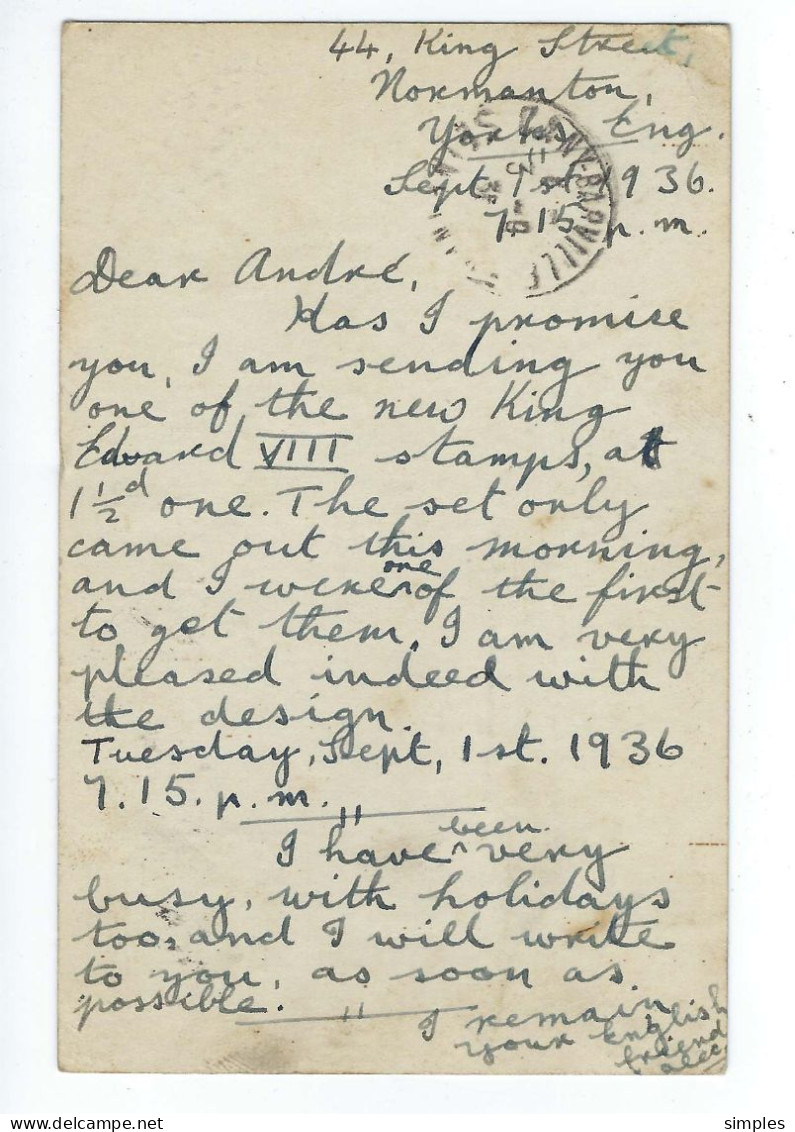 44, King Street,
Normanton,
Yorks, Eng.
Sept 1st 1936.
7.15 p.m.
Dear André,
Has I promise
you, I am sending you
one of the new King
Edward VIII stamps, at
1 1/2 d one. The set only
came out this morning,
and I were one of the first
to get them. I am very
pleased indeed with
the design.
Tuesday, Sept, 1st. 1936
7.15. p.m.
I have been very
busy, with holidays
too, and I will write
to you, as soon as
possible.
I remain
your English
friend
Alec
CANY-BARVILLE
delcampe.net
simples